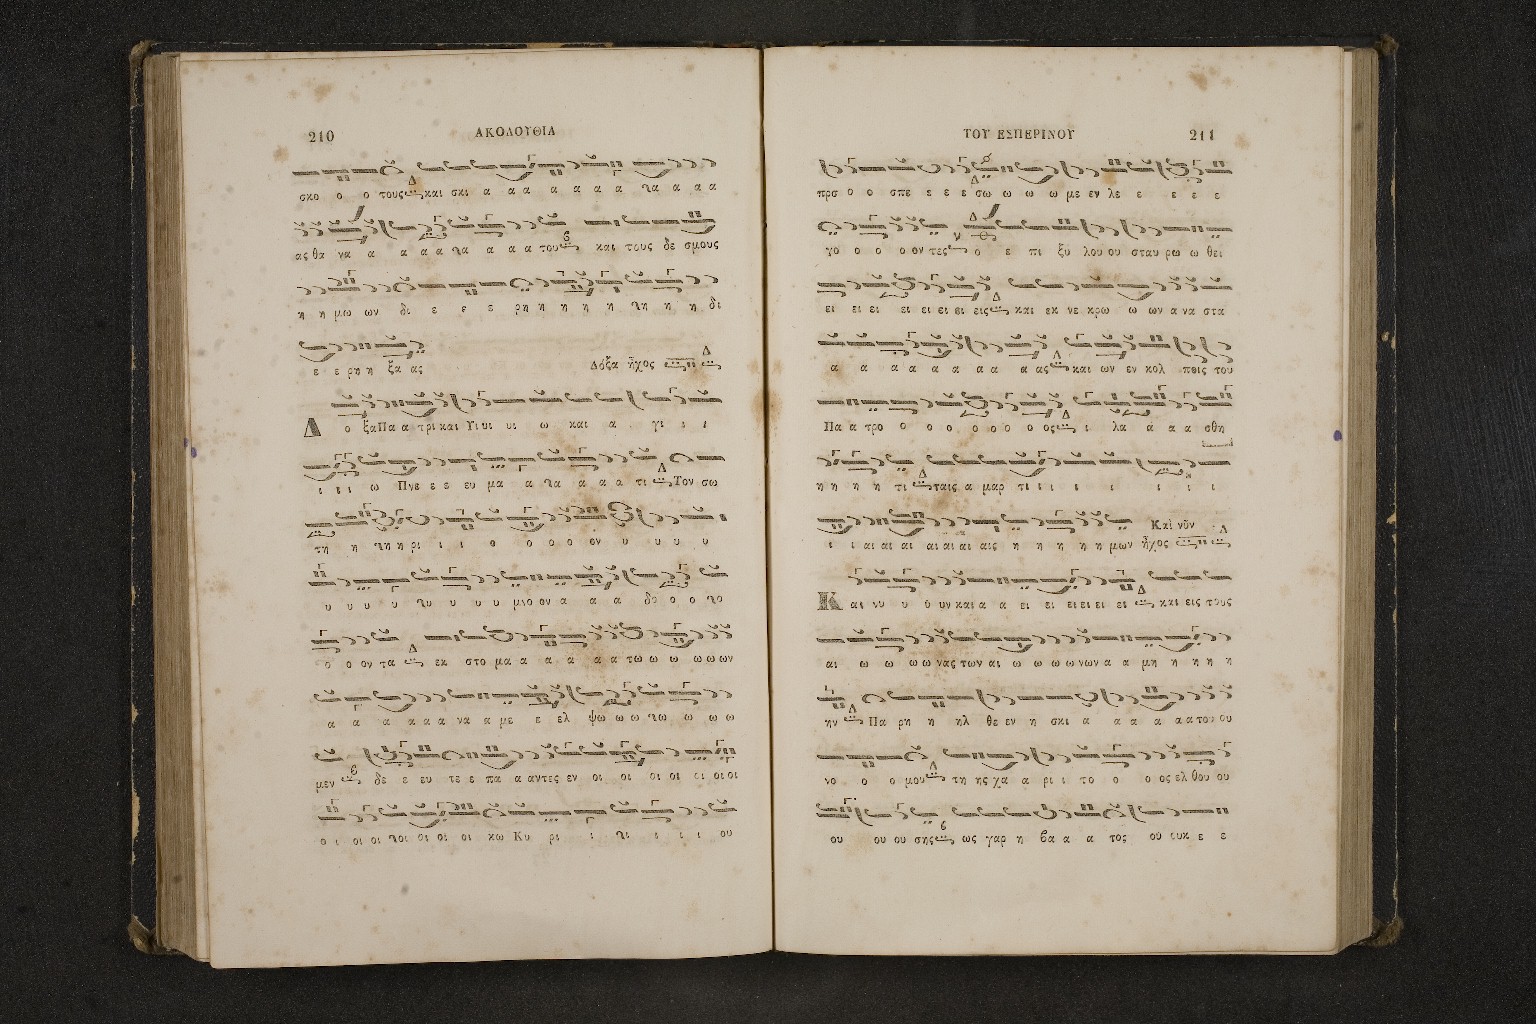 210
ΑΚΟΛΟΥΘΙΑ
σκο ο ο τους και σκι α α α α α α α λα α α α
ας θα να α α α α λα α α α του και τους δε σμους
η η μω ων δι ε ε ε ρη η η η η λη η η δι
ε ε ρη η ξα ας
Δόξα ἦχος
Δ ο ξα Πα α τρι και Υι υι υι ω και α γι ι ι
ι ι ι ω Πνε ε ε ευ μα α λα α α α τι Τον σω
τη η λη η ρι ι ι ο ο ο ο ον υ υ υ υ
υ υ υ υ λυ υ υ υ μνο ον α α α δο ο ο λο
ο ο ον τα εκ στο μα α α α α α τω ω ω ω ω ων
α α α α α α να α με ε ελ ψω ω ω λω ω ω ω
μεν δε ε ευ τε ε πα α αντες εν οι οι οι οι οι οι οι
ο ι οι οι λοι οι οι οι κω Κυ ρι ι λι ι ι ι ου
ΤΟΥ ΕΣΠΕΡΙΝΟΥ
211
προ ο ο σπε ε ε ε σω ω ω ω με εν λε ε ε ε ε
γο ο ο ο ον τες ο ε πι ξυ λου ου σταυ ρω ω θει
ει ει ει ει ει ει ει εις και εκ νε κρω ω ων α να στα
α α α α α α α α ας και ων εν κολ ποις του
Πα α τρο ο ο ο ο ο ο ο ος ι λα α α α σθη
η η η η τι ταις α μαρ τι ι ι ι ι ι ι ι
ι ι αι αι αι αι αι αι αις η η η η η μων ἦχος
Καὶ νῦν
Κ αι νυ υ υ υν και α α ει ει ει ει ει ει και εις τους
αι ω ω ω ω νας των αι ω ω ω ω νων α α μη η η η η
ην Πα ρη η ηλ θε εν η σκι α α α α α α του ου
νο ο ο μου τη ης χα α ρι ι το ο ο ος ελ θου ου
ου ου ου σης ως γαρ η βα α α τος ου ουκ ε ε